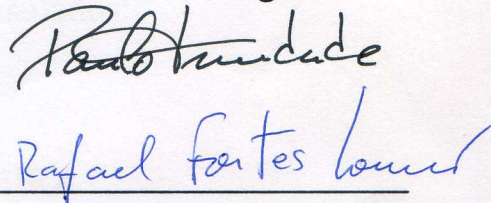 Paulo Trindade
Rafael Fortes